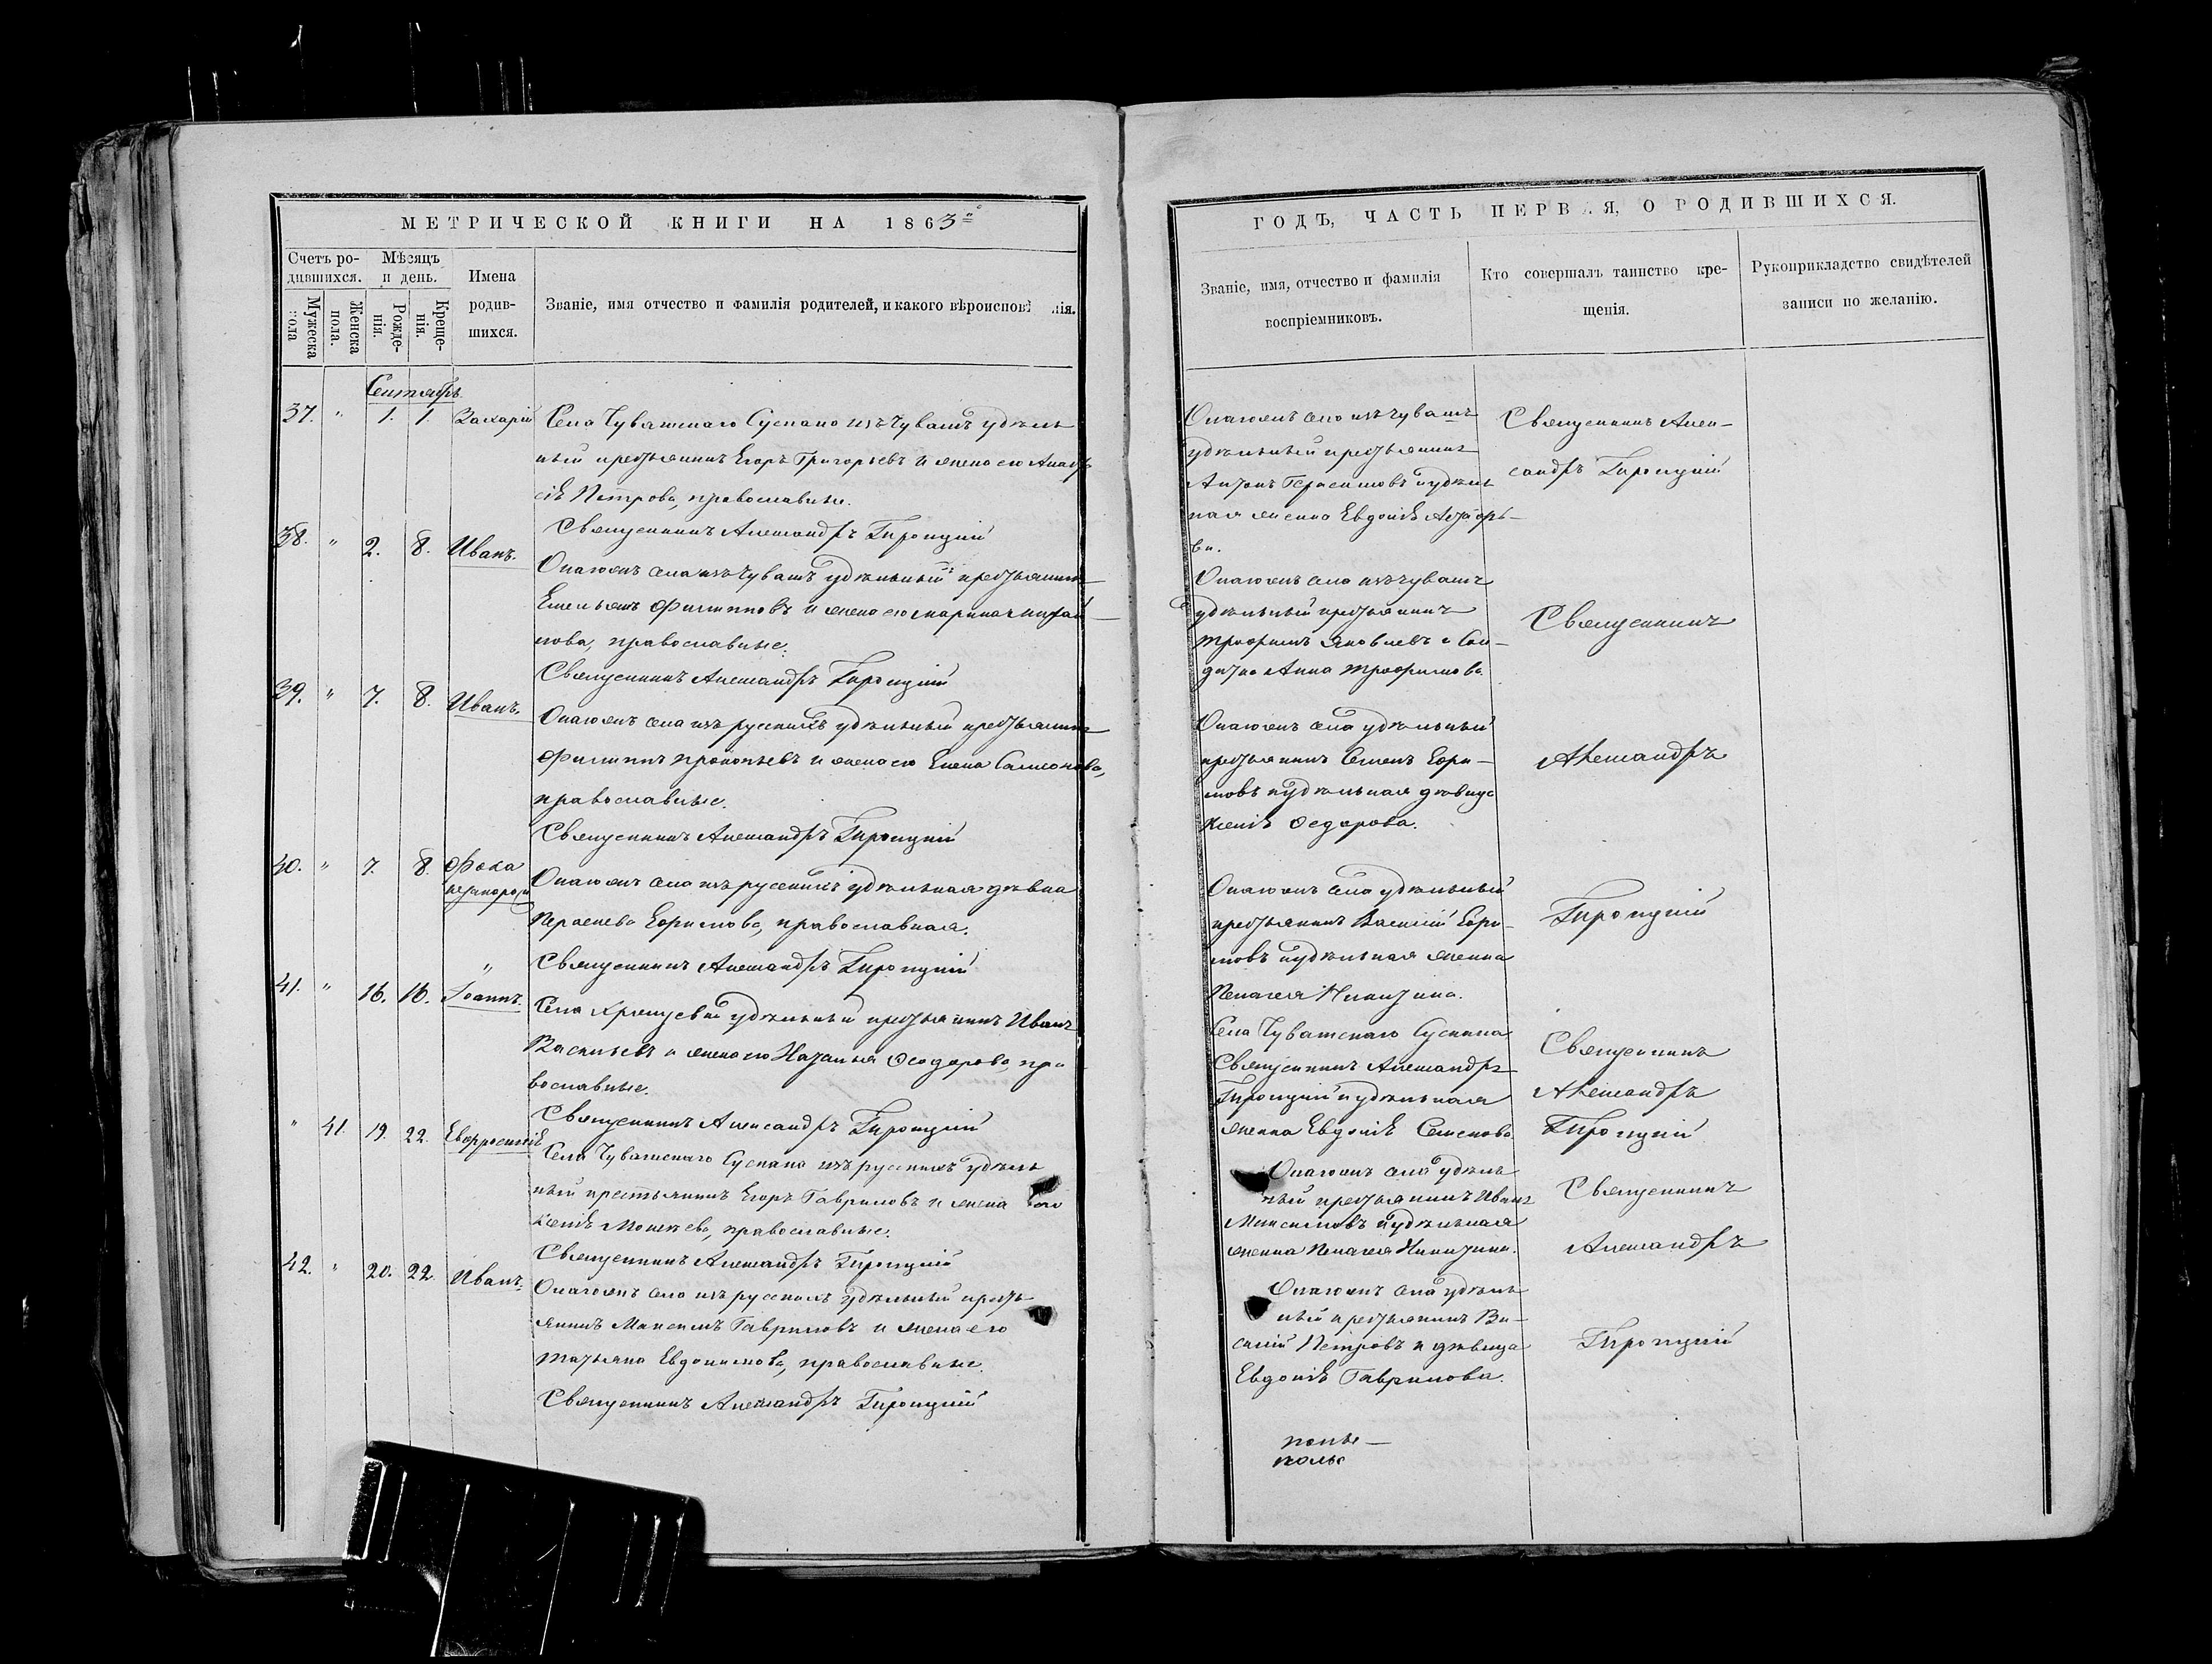 МЕТРИЧЕСКОЙ КНИГИ НА 1863й
Счетъ родившихся.
Мужеска пола
Женска пола.
Мѣсяцъ и день.
Рожденія.
Крещенія.
Имена родившихся.
Званіе, имя отчество и фамилія родителей, и какого вѣроисповѣ нія.
Сентябрь
37. " 1. 1. Захарій Села Чувашскаго Сускана изъ Чувашъ удѣль
ный крестьянинъ Егоръ Григорьевъ и жена его
Петрова, православные.
Священникъ Александръ
38. " 2. 8. Иванъ. Онагожъ села изъ Чувашъ удѣльный крестьянинъ
Емельянъ Филипповъ и жена его Марина Михай
лова, православные.
Священникъ Александръ
39. " 7. 8. Иванъ. Онагожъ села изъ русскихъ удѣльный крестьянинъ
Филиппъ Прокопьевъ и жена его Елена Самсонова,
православные.
Священникъ Александръ
40. " 7. 8. Фока
незаконорож
Онагожъ села изъ русскихъ удѣльная дѣвка
Параскева Ефимова, православная.
Священникъ Александръ
41. " 16. 16. Іоаннъ. Села удѣльный крестьянинъ Иванъ
Васильевъ и жена его Наталья Ѳеодорова, пра
вославные.
Священникъ Александръ
" 41. 19. 22. Евфросинія Села Чувашскаго Сускана изъ русскихъ удѣль
ный крестьянинъ Егоръ Гавриловъ и жена его
Ксенія Моисеева, православные.
Священникъ Александръ
42. " 20. 22. Иванъ. Онагожъ села изъ русскихъ удѣльный кресть
янинъ Максимъ Гавриловъ и жена его
Татьяна Евдокимова, православные.
Священникъ Александръ
ГОДЪ, ЧАСТЬ ПЕРВАЯ, О РОДИВШИХСЯ.
Званіе, имя, отчество и фамилія воспріемниковъ.
Кто совершалъ таинство крещенія.
Рукоприкладство свидѣтелей записи по желанію.
Онагожъ села изъ чувашъ
удѣльный крестьянинъ
Антонъ Герасимовъ и удѣль
ная женка Евдокія
Священникъ Алек-
сандръ
Онагожъ села изъ чувашъ
удѣльный крестьянинъ
Трофимъ Яковлевъ и Сол-
датка Анна Трофимова.
Священникъ
Онагожъ села удѣльный
крестьянинъ Семенъ Ефи-
мовъ и удѣльная дѣвица
Ксенія Ѳедорова.
Александръ
Онагожъ села удѣльный
крестьянинъ Василій Ефи-
мовъ и удѣльная женка
Пелагея Никитина.
Села Чувашскаго Сускана
Священникъ Александръ
и удѣльная
женка Евдокія Семенова
Священникъ
Александръ
Онагожъ села удѣль
ный крестьянинъ Иванъ
Максимовъ и удѣльная
женка Пелагея Никитина.
Священникъ
Александръ
Онагожъ села удѣль
ный крестьянинъ Ва-
силій Петровъ и дѣвица
Евдокія Гаврилова.